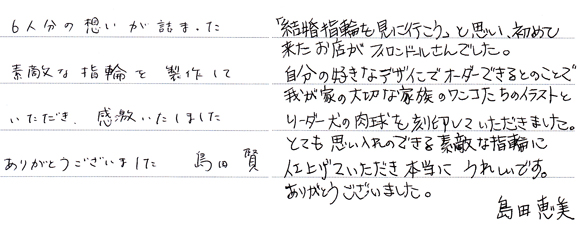 6人分の想いが詰まった
素敵な指輪を製作して
いただき、感激いたしました
ありがとうございました 島田 賢
「結婚指輪を見に行こう」と思い、初めて
来たお店がフィロンドールさんでした。
自分の好きなデザインでオーダーできるとのことで
我が家の大切な家族のワンコたちのイラストと
リーダー犬の肉球を刻印していただきました。
とても思い入れのできる素敵な指輪に
仕上げていただき本当にうれしいです。
ありがとうございました。
島田恵美